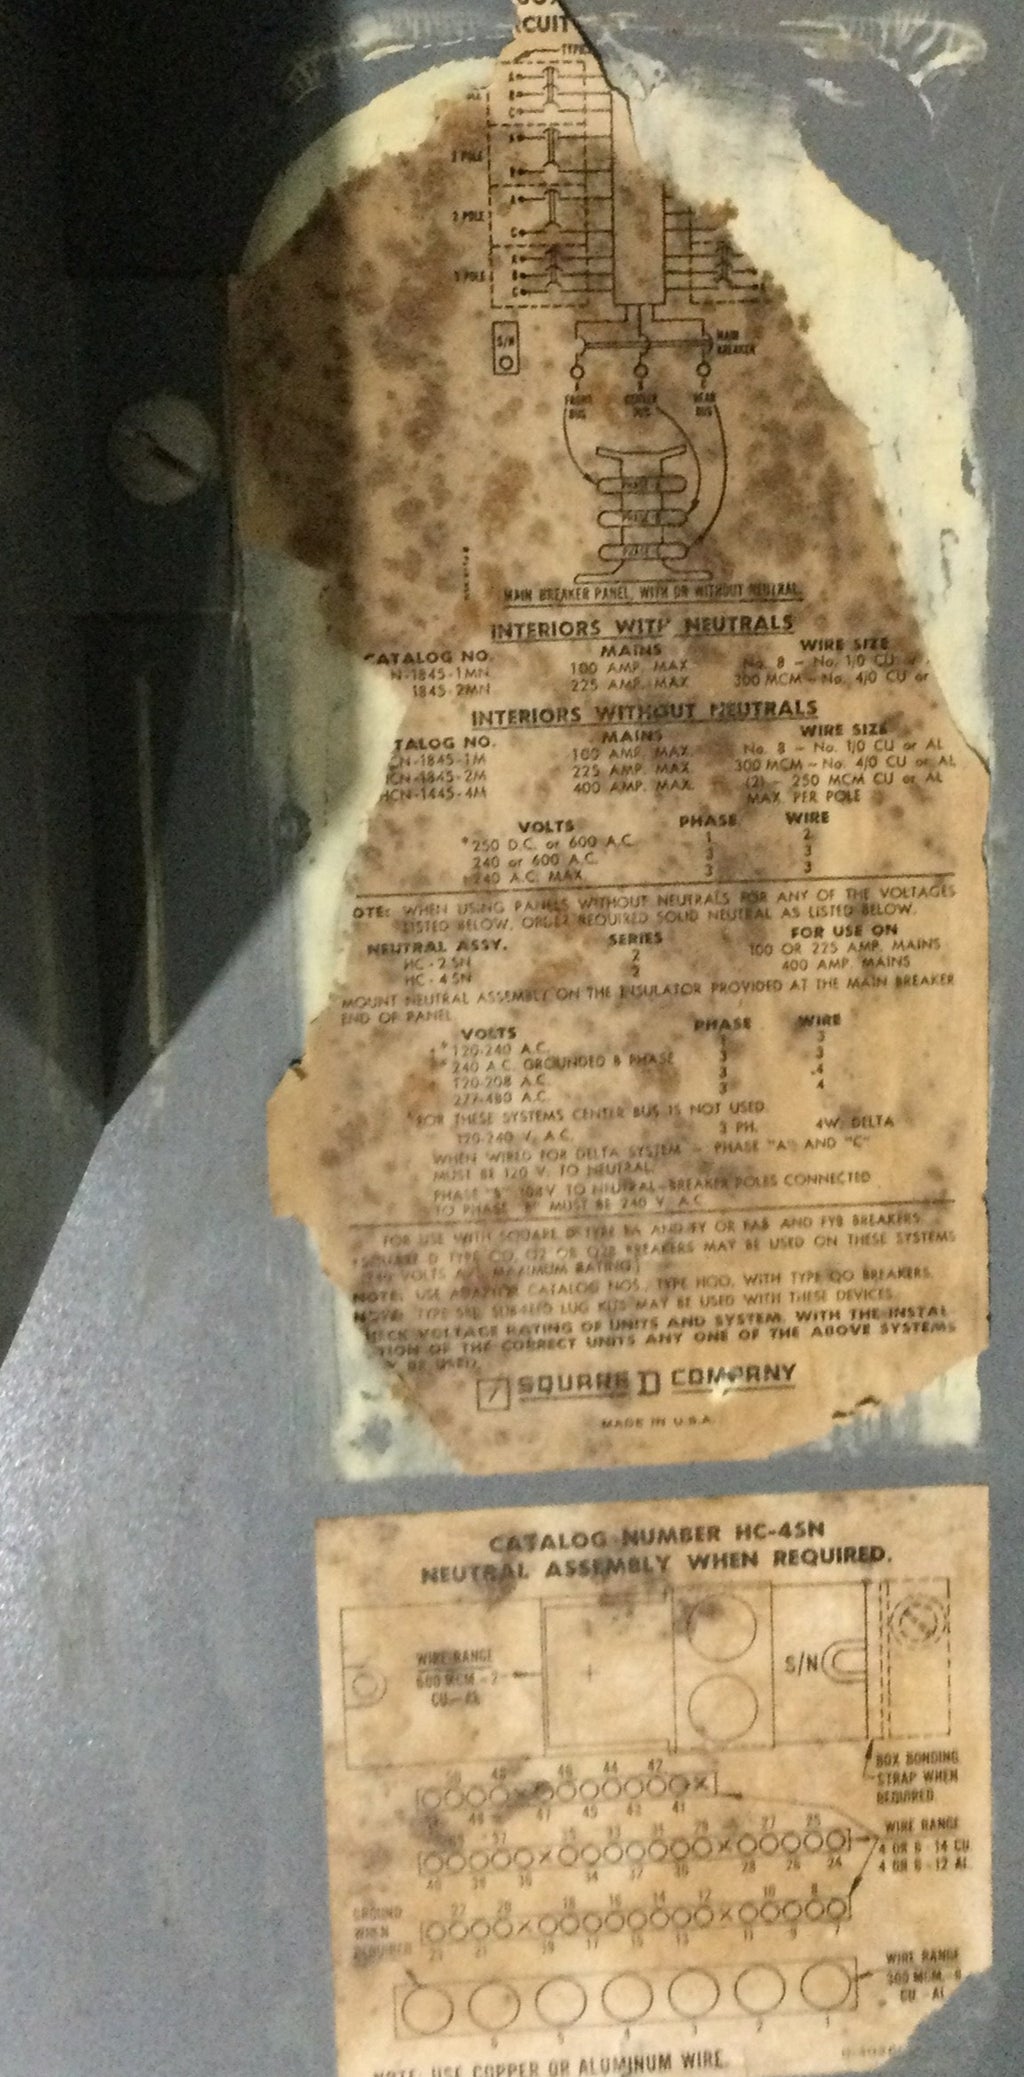 CUIT
A
B
C
2 POLE
A
B
2 POLE
A
C
3 POLE
A
B
C
S/N
MAIN
BREAKER
FRONT
BUS
CENTER
BUS
REAR
BUS
PHASE
PHASE
PHASE
MAIN BREAKER PANEL, WITH OR WITHOUT NEUTRAL.
INTERIORS WITH NEUTRALS
CATALOG NO. MAINS WIRE SIZE
N-1845-1MN 100 AMP. MAX No. 8 - No. 1/0 CU or
1845-2MN 225 AMP. MAX 300 MCM - No. 4/0 CU or
INTERIORS WITHOUT NEUTRALS
TALOG NO. MAINS WIRE SIZE
CN-1845-1M 100 AMP. MAX. No. 8 - No. 1/0 CU or AL
CN-1845-2M 225 AMP. MAX. 300 MCM - No. 4/0 CU or AL
HCN-1445-4M 400 AMP. MAX. (2) - 250 MCM CU or AL
MAX. PER POLE
VOLTS PHASE WIRE
*250 D.C. or 600 A.C. 1 2
240 or 600 A.C. 3 3
240 A.C. MAX. 3 3
OTE: WHEN USING PANELS WITHOUT NEUTRALS FOR ANY OF THE VOLTAGES
LISTED BELOW, ORDER REQUIRED SOLID NEUTRAL AS LISTED BELOW.
NEUTRAL ASSY. SERIES FOR USE ON
HC - 2 SN 2 100 OR 225 AMP. MAINS
HC - 4 SN 2 400 AMP. MAINS
MOUNT NEUTRAL ASSEMBLY ON THE INSULATOR PROVIDED AT THE MAIN BREAKER
END OF PANEL.
VOLTS PHASE WIRE
120-240 A.C. 3
240 A.C. GROUNDED B PHASE 3 3
120-208 A.C. 3 4
277-480 A.C. 3 4
*FOR THESE SYSTEMS CENTER BUS IS NOT USED.
120-240 V. A.C. 3 PH. 4W. DELTA
WHEN WIRED FOR DELTA SYSTEM - PHASE "A" AND "C"
MUST BE 120 V. TO NEUTRAL.
PHASE "B" TO NEUTRAL-BREAKER POLES CONNECTED
TO PHASE "B" MUST BE 240 V. A.C.
FOR USE WITH SQUARE D TYPE FA AND FY OR FAB AND FYB BREAKERS.
SQUARE D TYPE QO, Q2 OR BREAKERS MAY BE USED ON THESE SYSTEMS
VOLTS A.C. MAXIMUM RATING)
NOTE: USE ADAPTOR CATALOG NOS., TYPE HQO, WITH TYPE QO BREAKERS.
NOTE: TYPE SUB-FEED LUG KITS MAY BE USED WITH THESE DEVICES.
HECK VOLTAGE RATING OF UNITS AND SYSTEM. WITH THE INSTAL-
TION OF THE CORRECT UNITS ANY ONE OF THE ABOVE SYSTEMS
Y BE USED.
SQUARE D COMPANY
MADE IN U.S.A.
CATALOG NUMBER HC-4SN
NEUTRAL ASSEMBLY WHEN REQUIRED.
WIRE RANGE
600 MCM - 2
CU - AL
S/N
BOX BONDING
STRAP WHEN
REQUIRED
44 42
47 45 43 41
WIRE RANGE
4 OR 6 - 14 CU
4 OR 6 - 12 AL
37 35 33 31 29 27 25
34 32 30 28 26 24
GROUND
WHEN
REQUIRED
22 20 18 16 14 12 10 8
23 21 19 17 15 13 11 9 7
WIRE RANGE
300 MCM - 6
CU - AL
6 5 4 3 2 1
NOTE: USE COPPER OR ALUMINUM WIRE.